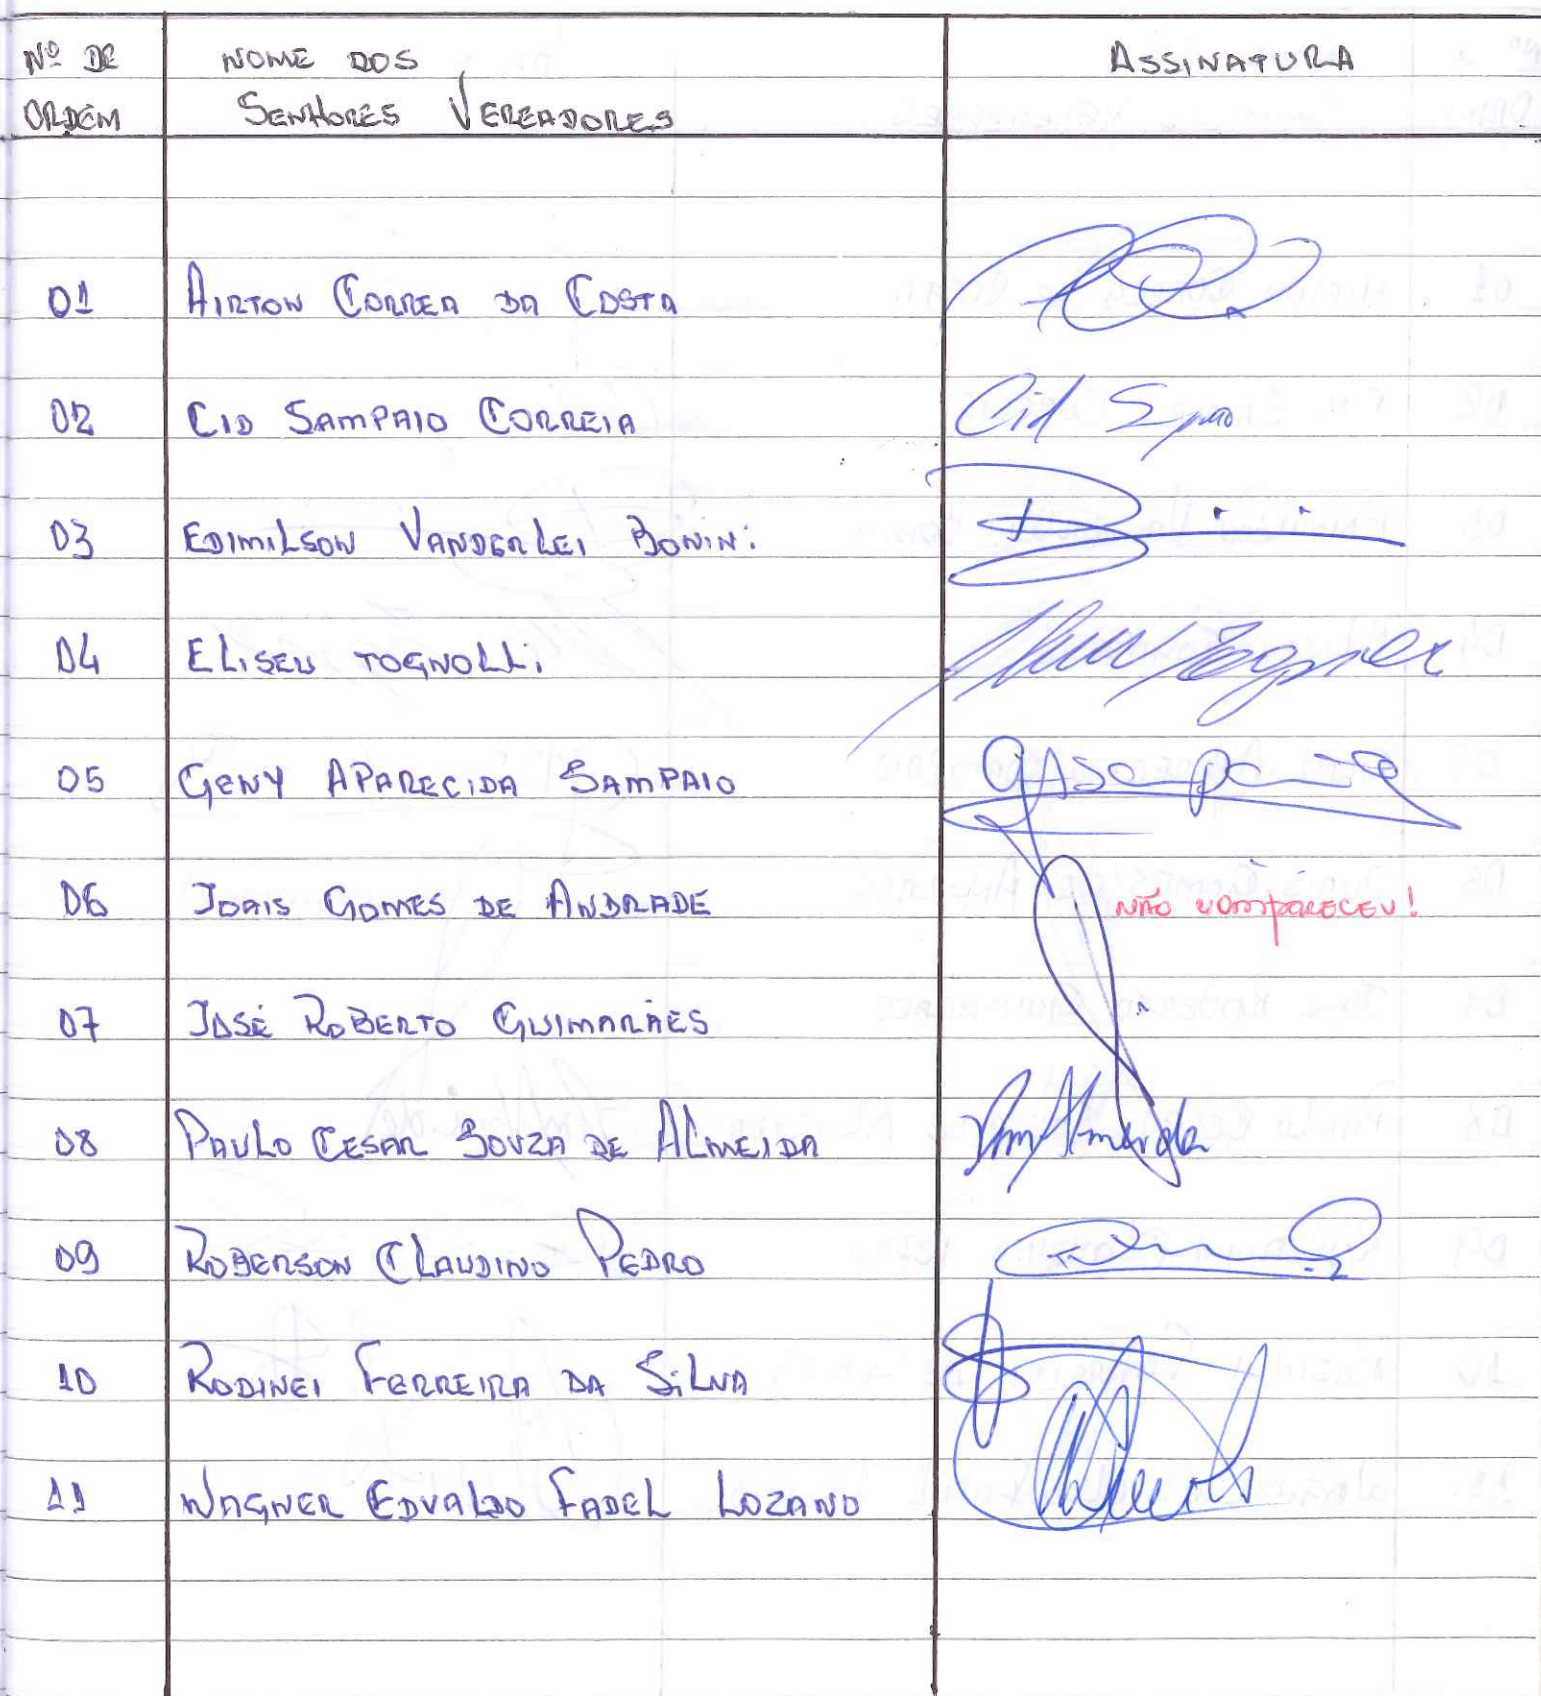 Nº DE NOME DOS ASSINATURA
ORDEM SENHORES VEREADORES
01 AIRTON CORREA DA COSTA
02 CID SAMPAIO CORREIA Cid
03 EDIMILSON VANDERLEI BONINI
04 ELISEU TOGNOLLI
05 GENY APARECIDA SAMPAIO GASampaio
06 JORIS GOMES DE ANDRADE NÃO COMPARECEU!
07 JOSÉ ROBERTO GUIMARÃES
08 PAULO CESAR SOUZA DE ALMEIDA Almeida
09 ROBERSON CLAUDINO PEDRO
10 RODINEI FERREIRA DA SILVA
11 WAGNER EDVALDO FADEL LOZANO